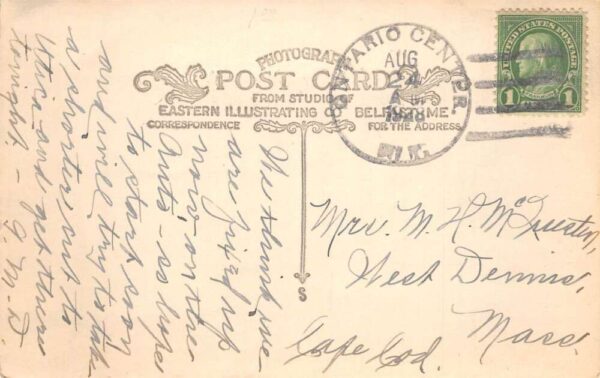 PHOTOGRAPH
POST CARD
FROM STUDIO OF
EASTERN ILLUSTRATING BELFAST, ME
CORRESPONDENCE
FOR THE ADDRESS
ONTARIO CENTER
AUG
24
1928
N.Y.
UNITED STATES POSTAGE
1 1
We think we
are fixed up
now on the
auto - so hope
to start soon
and will try to take
a shorter cut to
Utica and get there
tonight -
Mrs. M. H.
West Dennis,
Mass.
Cape Cod.
S